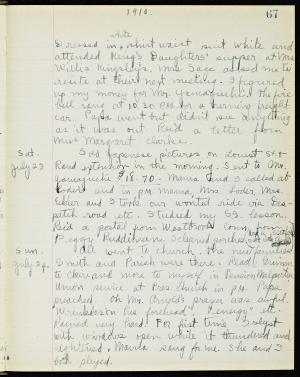 1910.
67
white
Dressed in shirt waist suit white and
attended King's Daughters' supper at Mrs
Willis Kingsley's. Mrs Sage asked me to
recite at their next meeting. I figured
up my money for Mr. Yamaguchi. The fire
bell rang at 10 30 P.M. for a burning freight
car. Papa went but didn't see anything
as it was out. Rec'd a letter from
Miss Margaret Clarke.
Sat.
July 23
Sold Japanese pictures on Locust St +
Rand extension in the morning. Sent to Mr.
Yamaguchi $18.70. Mama and I called at
and in P.M. Mama, Mrs. Mrs.
and I took our wonted ride via Des-
patch road etc. Studied my S.S. lesson.
Rec'd a postal from Westbrook Conn. from
Peggy
Sun.
July 24
All went to church. The new families
Smith and Parish were there. Read
to Cleve and more to myself in
Union service at Pres church in P.M. Papa
preached. Oh Mr. Arnold's prayer was awful.
his forehead, "energy" etc.
Rained very hard. For first time I slept
with windows open while it thundered and
lightnined. Manila sang for me. She and I
both played.